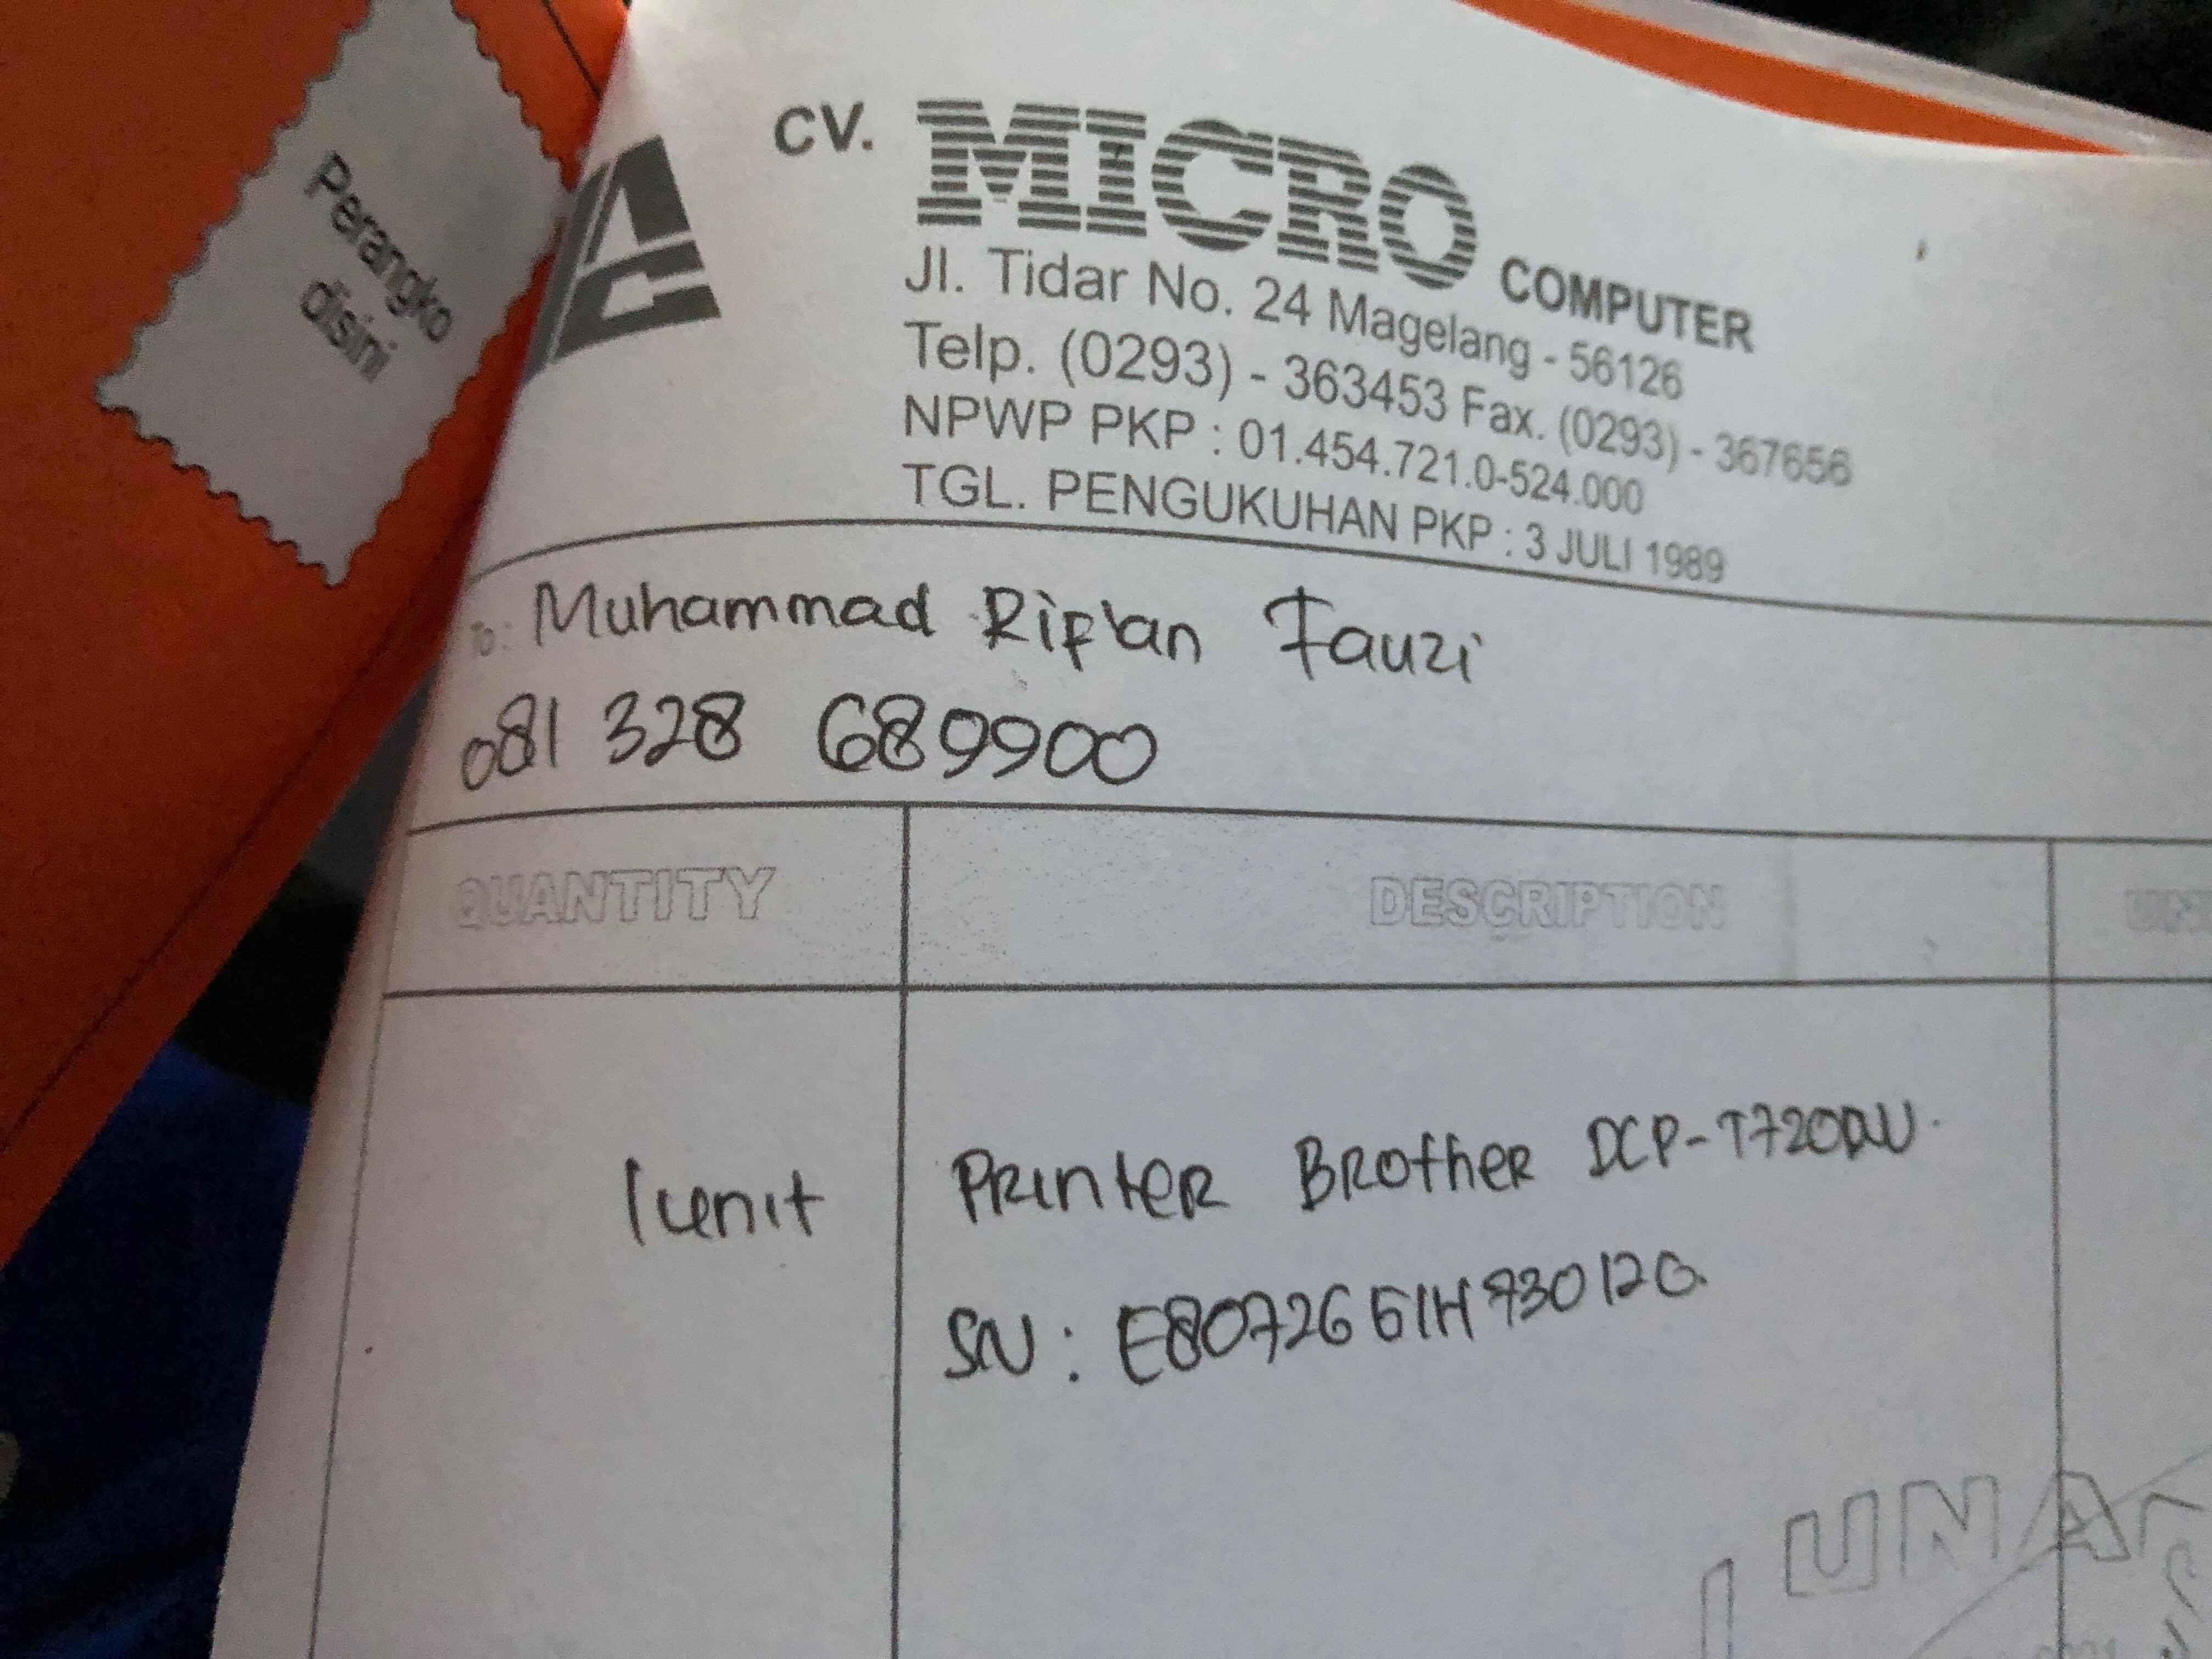 Perangko
disini
CV. MICRO COMPUTER
Jl. Tidar No. 24 Magelang - 56126
Telp. (0293) - 363453 Fax. (0293) - 367656
NPWP PKP : 01.454.721.0-524.000
TGL. PENGUKUHAN PKP : 3 JULI 1989
To: Muhammad Rif'an Fauzi
081 328 689900
QUANTITY DESCRIPTION
1 unit Printer Brother DCP-T720DW.
SN: E80726G1H730120